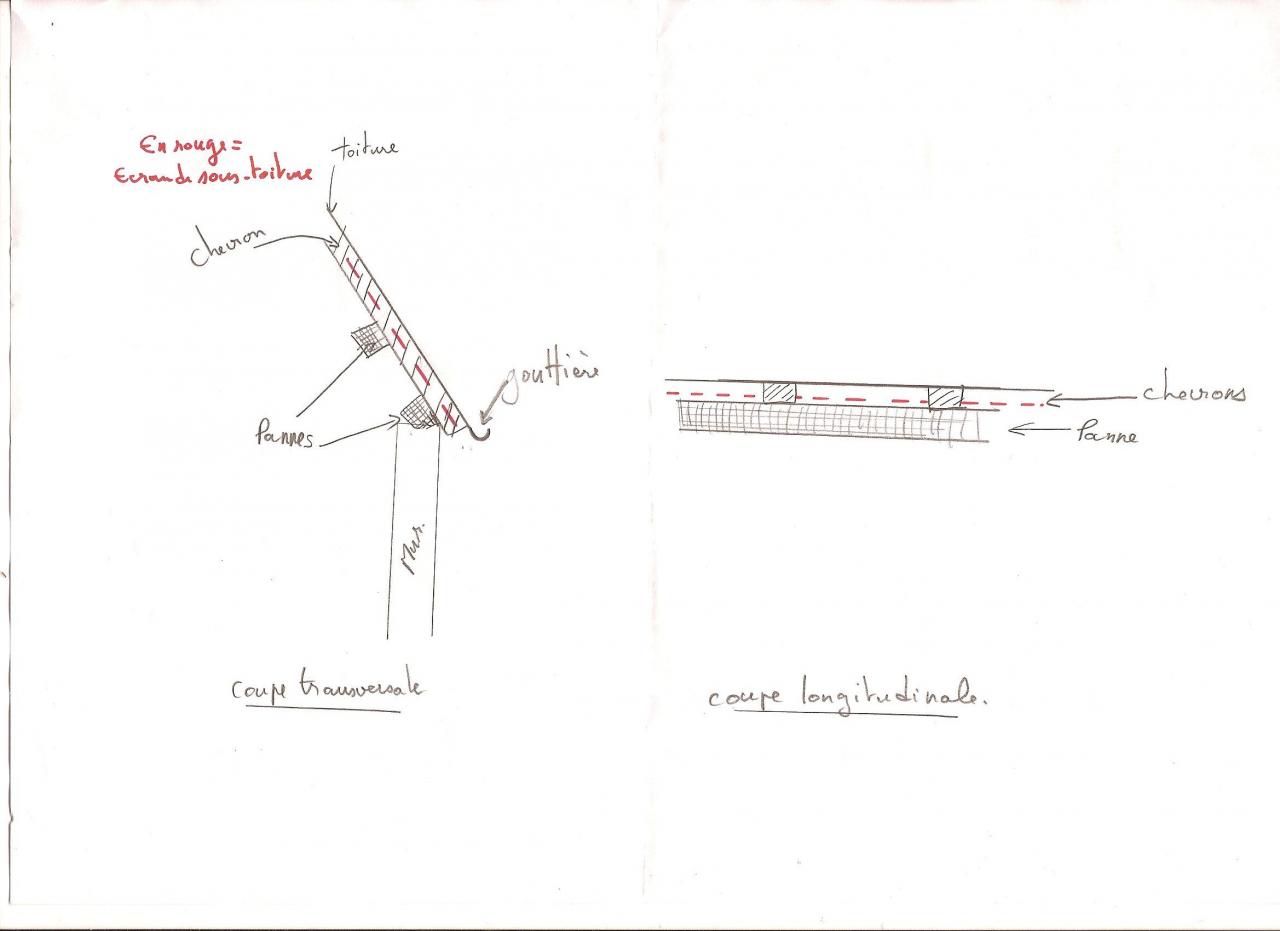 En rouge =
Ecran de sous-toiture
toiture
chevron
gouttière
Pannes
Mur.
coupe transversale
chevrons
Panne
coupe longitudinale.